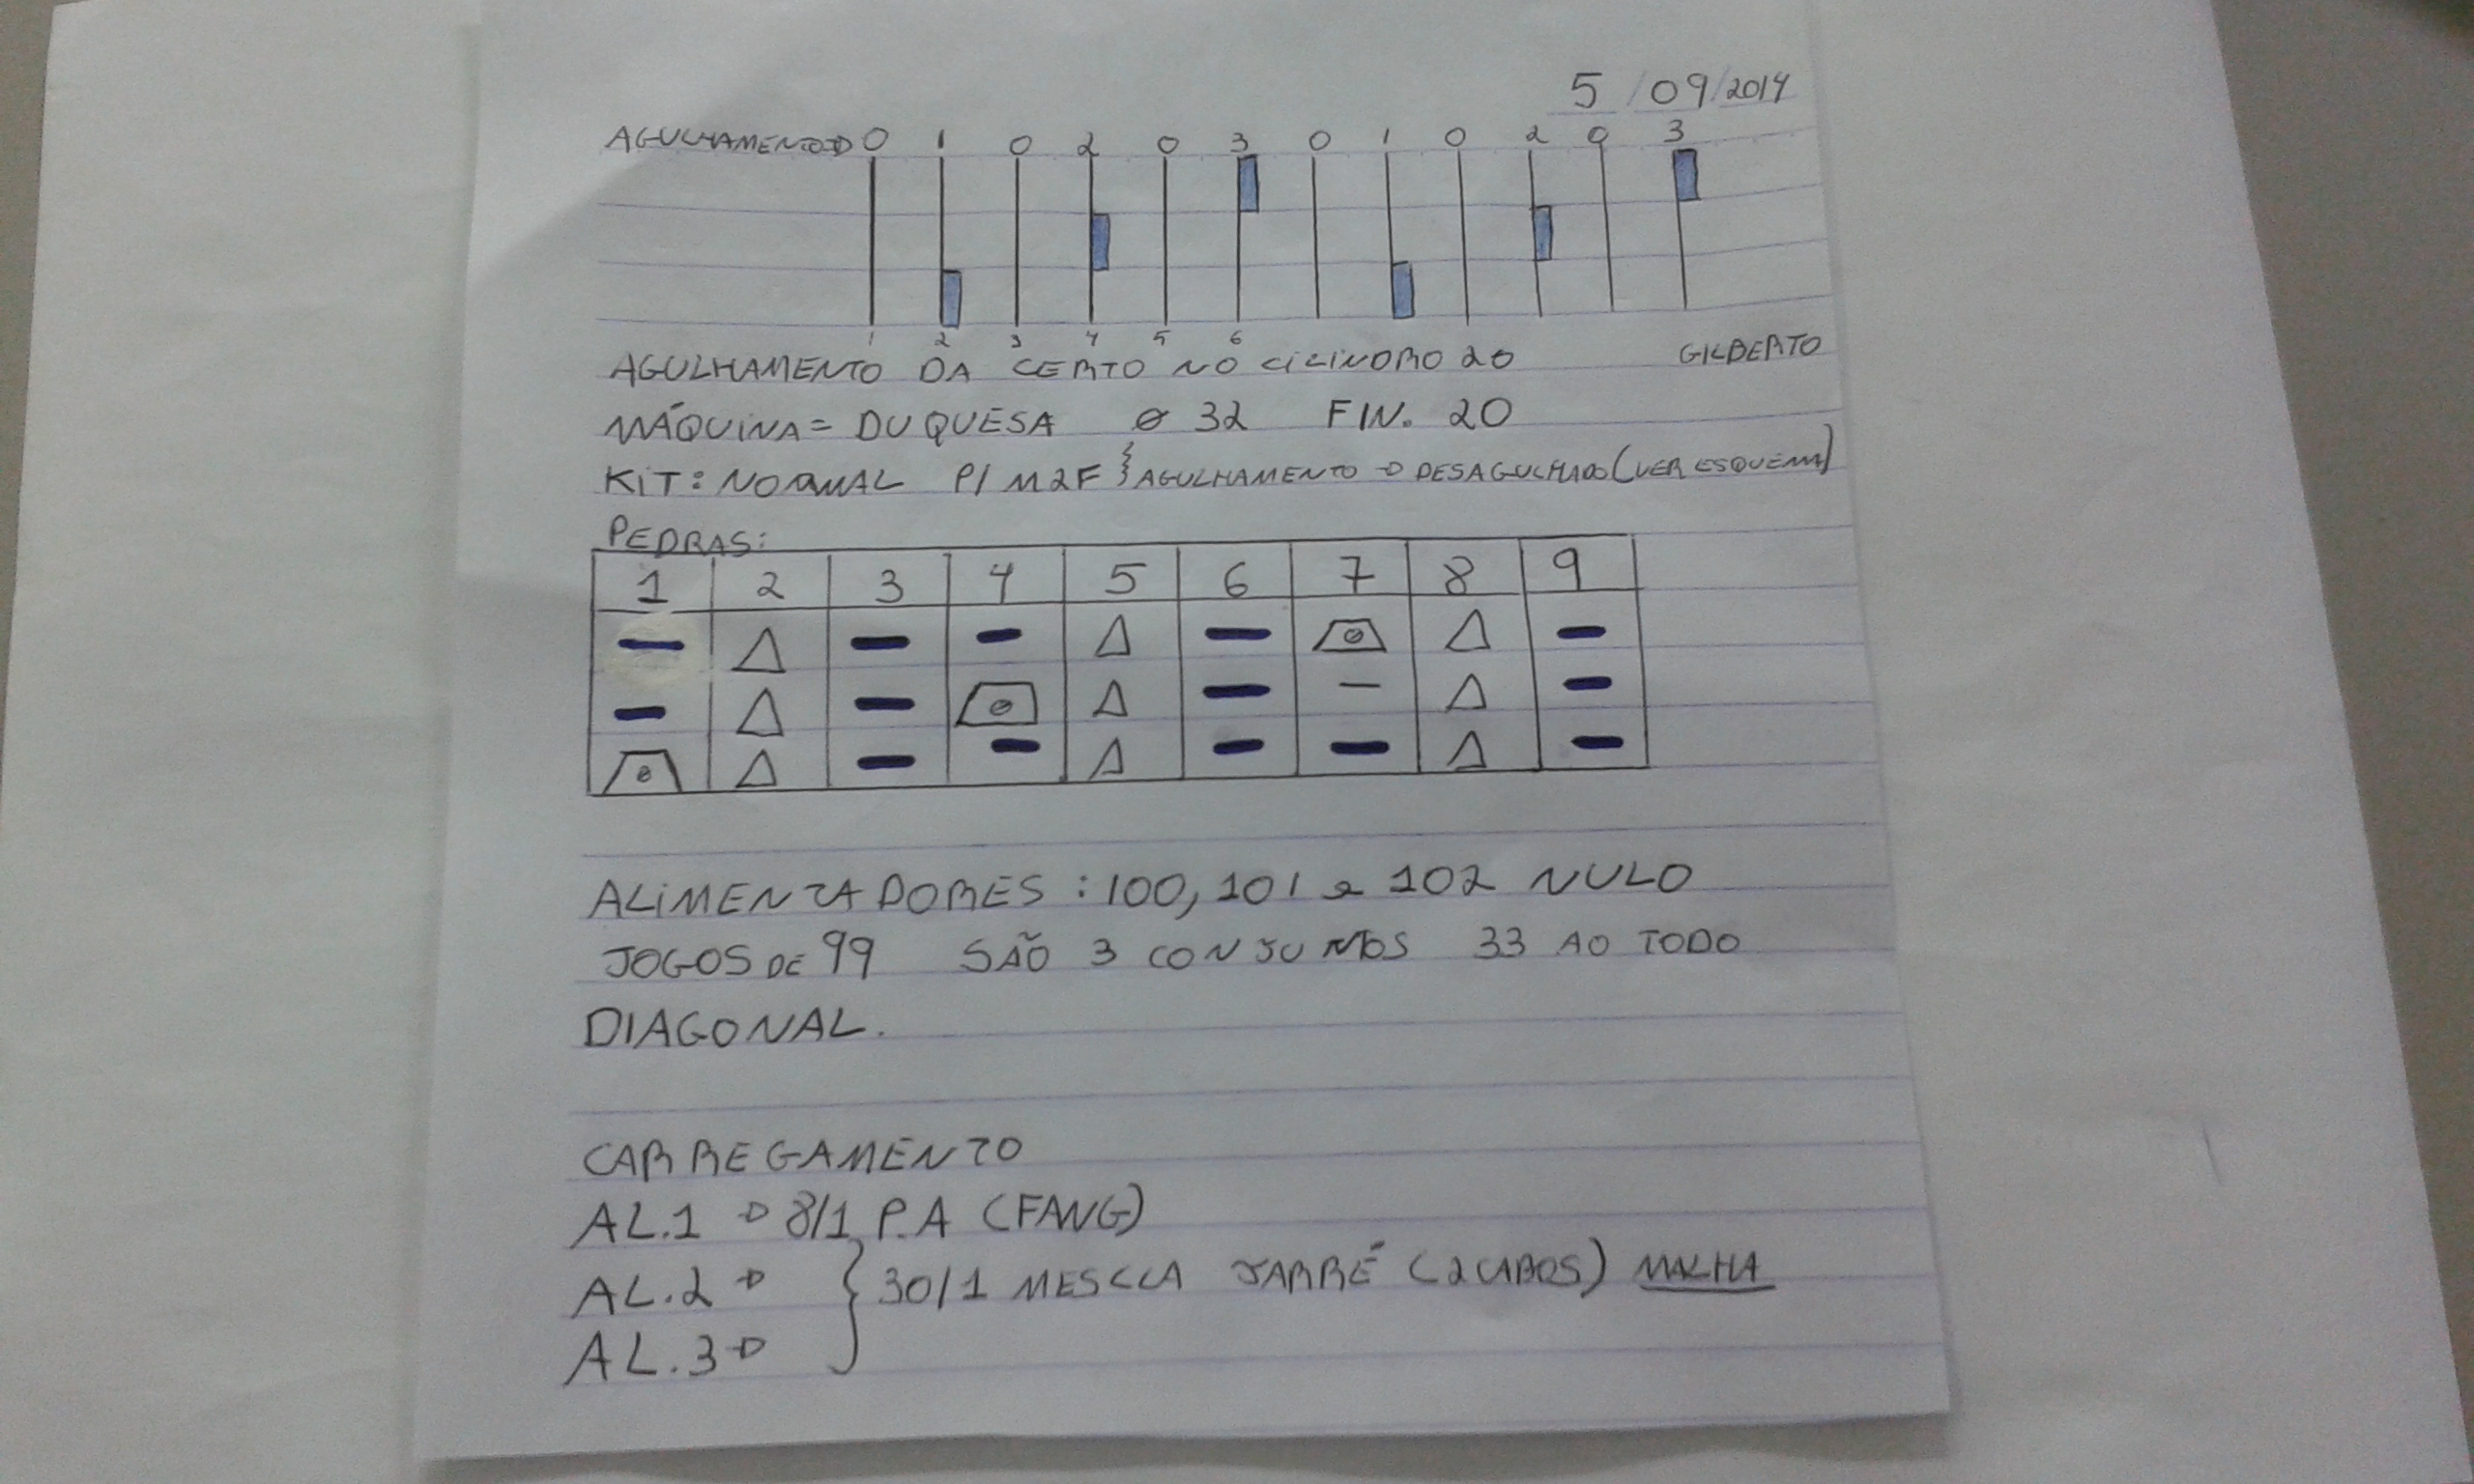 5/09/2014
AGULHAMENTO 0 1 0 2 0 3 0 1 0 2 0 3
1 2 3 4 5 6
AGULHAMENTO DA CERTO NO CILINDRO 20 GILBERTO
MÁQUINA= DUQUESA ø 32 FIN. 20
KIT: NORMAL P/ M2F } AGULHAMENTO → DESAGULHADO (VER ESQUEMA)
PEDRAS:
1 2 3 4 5 6 7 8 9
ALIMENTADORES : 100, 101 e 102 NULO
JOGOS DE 99 SÃO 3 CONJUNTOS 33 AO TODO
DIAGONAL.
CARREGAMENTO
AL.1 → 8/1 P.A (FANG)
AL.2 → } 30/1 MESCLA JARRÉ (2 CABOS) MALHA
AL.3 →